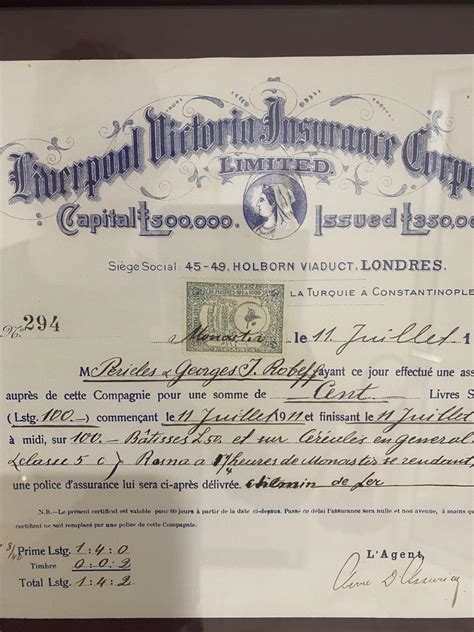 Liverpool Victoria Insurance Corpo
LIMITED.
Capital £500,000. Issued £350,00
Siège Social: 45-49, HOLBORN VIADUCT, LONDRES.
LA TURQUIE À CONSTANTINOPLE
No. 294 Monastir 11 Juillet 1
M Pericles & Georges J. ayant ce jour effectué une ass
auprès de cette Compagnie pour une somme de Cent Livres S
(Lstg. 100.-) commençant le 11 Juillet 1911 et finissant le 11 Juillet
à midi, sur 100.- Bâtisses L50 et sur Céréales en general
classe 5 c) Resna a heures de Monastir se rendant
une police d'assurance lui sera ci-après délivrée. chemin de fer
N.B.-Le présent certificat est valable pour 60 jours à partir de la date ci-dessus. Passé ce délai l'assurance sera nulle et non avenue, à moins q
certificat ne soit remplacé par une police de cette Compagnie.
Prime Lstg. 1:4:0
Timbre 0:0:2
Total Lstg. 1:4:2
L'Agent,